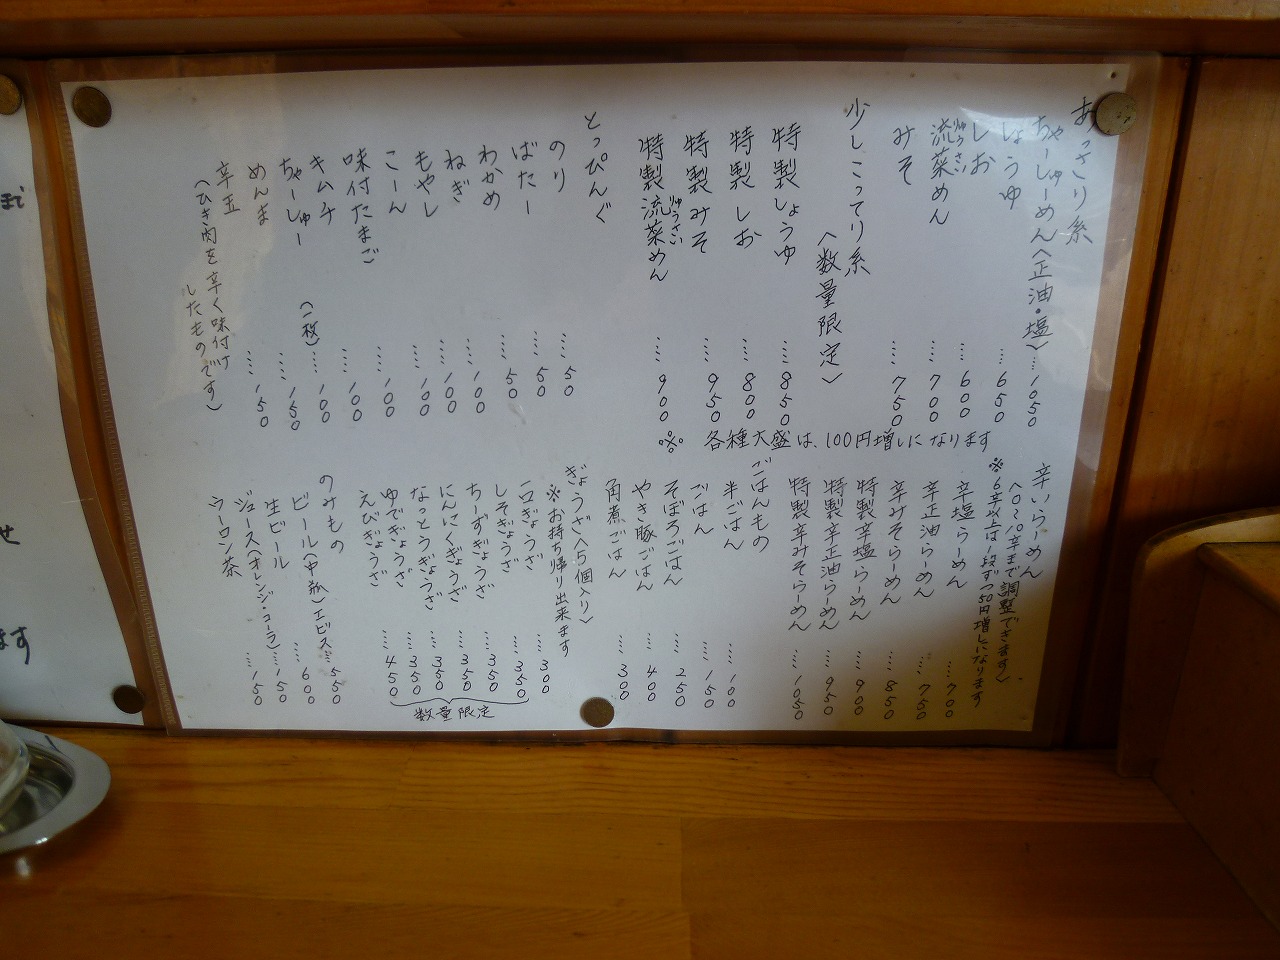 あっさり系
ちゃーしゅーめん(正油・塩)…1050
しょうゆ…650
しお…600
流菜めん…700
りゅうさい
みそ…750
少しこってり系
(数量限定)
特製しょうゆ…850
特製しお…800
特製みそ…950
特製流菜めん…900
りゅうさい
※各種大盛は、100円増しになります
とっぴんぐ
のり…50
ばたー…50
わかめ…50
ねぎ…100
もやし…100
こーん…100
味付たまご…100
キムチ…100
ちゃーしゅー(一枚)…100
めんま…150
辛玉…150
(ひき肉を辛く味付け
したものです)
辛いらーめん
(0〜10辛まで調整できます)
※6辛以上は一段ずつ50円増しになります
辛塩らーめん…700
辛正油らーめん…750
辛みそらーめん…850
特製辛塩らーめん…900
特製辛正油らーめん…950
特製辛みそらーめん…1050
ごはんもの
半ごはん…100
ごはん…150
そぼろごはん…250
やき豚ごはん…400
角煮ごはん…300
ぎょうざ(5個入り)
※お持ち帰り出来ます
一口ぎょうざ…300
しそぎょうざ…350
ちーずぎょうざ…350
にんにくぎょうざ…350
なっとうぎょうざ…350
ゆでぎょうざ…350
えびぎょうざ…450
数量限定
のみもの
ビール(中瓶)エビス…550
生ビール…600
ジュース(オレンジ・コーラ)…150
ウーロン茶…150
まで
せ
ます